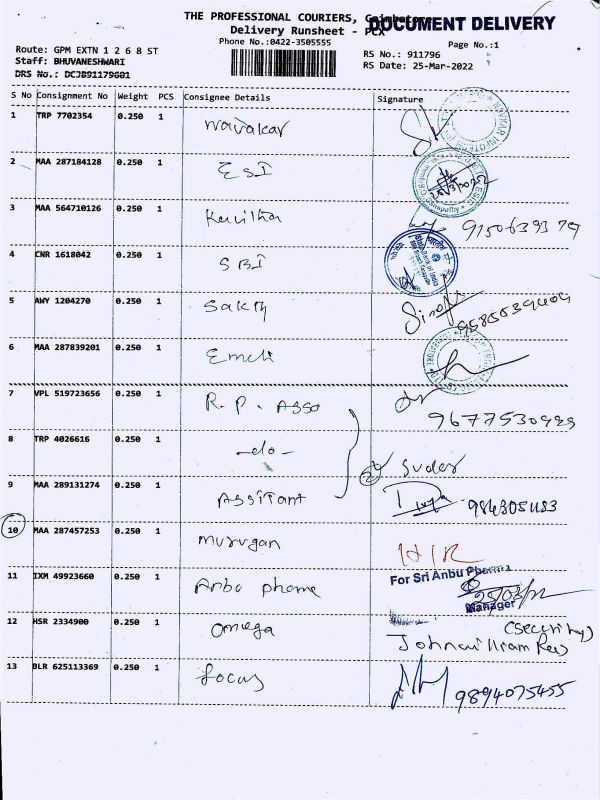 THE PROFESSIONAL COURIERS, Coimbatore
DOCUMENT DELIVERY
Delivery Runsheet - PCX
Phone No.:0422-3505555
Page No.:1
Route: GPM EXTN 1 2 6 8 ST
Staff: BHUVANESHWARI
DRS No.: DCJB91179601
RS No.: 911796
RS Date: 25-Mar-2022
S No Consignment No Weight PCS Consignee Details Signature
1 TRP 7702354 0.250 1 navakar
2 MAA 287184128 0.250 1 ESI
3 MAA 564710126 0.250 1 Kavitha 9150639379
4 CNR 1618042 0.250 1 SBI
5 AWY 1204270 0.250 1 Sakthi
6 MAA 287839201 0.250 1
7 VPL 519723656 0.250 1 R.P. Asso 9677530989
8 TRP 4026616 0.250 1 -do-
9 MAA 289131274 0.250 1 Assitant
10 MAA 287457253 0.250 1 murugan
11 IXM 49923660 0.250 1 Anbu pharma For Sri Anbu Pharma
Manager
12 HSR 2334900 0.250 1 Omega (Security)
13 BLR 625113369 0.250 1 focus 9894075455